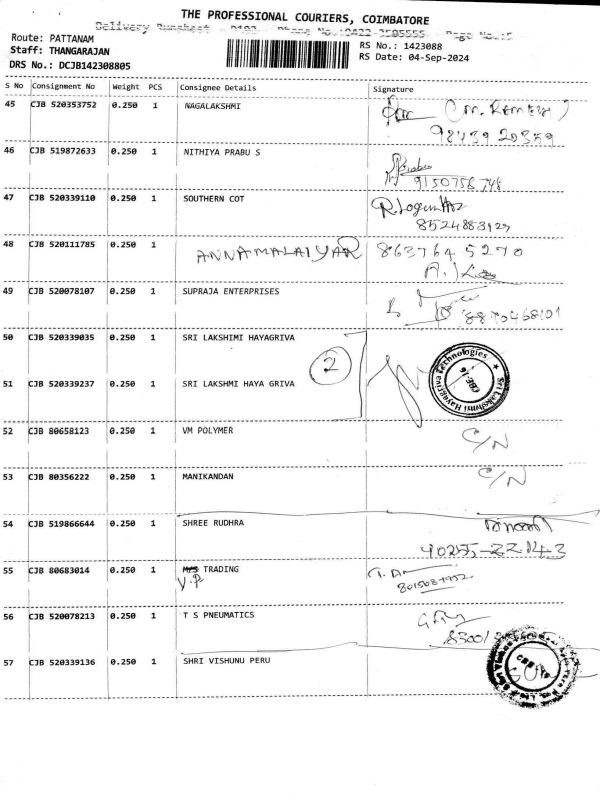 THE PROFESSIONAL COURIERS, COIMBATORE
Route: PATTANAM
RS No.: 1423088
Staff: THANGARAJAN
RS Date: 04-Sep-2024
DRS No.: DCJB142308805
S No Consignment No Weight PCS Consignee Details Signature
45 CJB 520353752 0.250 1 NAGALAKSHMI
9843920359
46 CJB 519872633 0.250 1 NITHIYA PRABU S
9150756748
47 CJB 520339110 0.250 1 SOUTHERN COT
48 CJB 520111785 0.250 1 ANNAMALAIYAR 8637645270
49 CJB 520078107 0.250 1 SUPRAJA ENTERPRISES
50 CJB 520339035 0.250 1 SRI LAKSHIMI HAYAGRIVA
2
Sri Lakshmi Hayagriva Technologies
CBE-16
51 CJB 520339237 0.250 1 SRI LAKSHMI HAYA GRIVA
52 CJB 80658123 0.250 1 VM POLYMER C/N
53 CJB 80356222 0.250 1 MANIKANDAN C/N
54 CJB 519866644 0.250 1 SHREE RUDHRA
55 CJB 80683014 0.250 1 M/S TRADING
V.P
56 CJB 520078213 0.250 1 T S PNEUMATICS
57 CJB 520339136 0.250 1 SHRI VISHUNU PERU